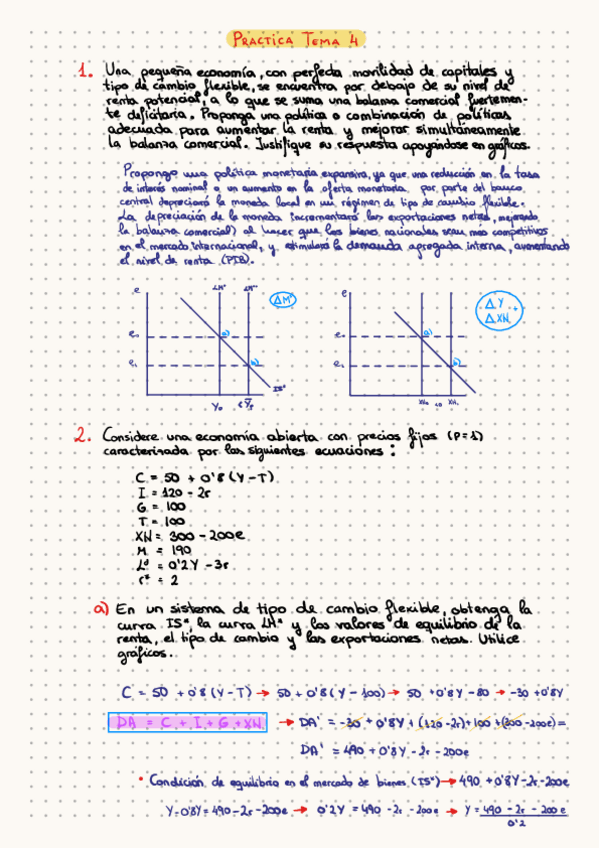 PRACTICA TEMA 4
1. Una pequeña economía, con perfecta movilidad de capitales y
tipo de cambio flexible, se encuentra por debajo de su nivel de
renta potencial, a lo que se suma una balanza comercial fuertemen-
te deficitaria. Proponga una política o combinación de políticas
adecuada para aumentar la renta y mejorar simultáneamente
la balanza comercial. Justifique su respuesta apoyándose en gráficos.
Propongo una política monetaria expansiva, ya que una reducción en la tasa
de interés nominal o un aumento en la oferta monetaria por parte del banco
central depreciará la moneda local en un régimen de tipo de cambio flexible.
La depreciación de la moneda incrementará las exportaciones netas, mejorando
la balanza comercial) al hacer que los bienes nacionales sean más competitivos
en el mercado internacional, y estimulará la demanda agregada interna, aumentando
el nivel de renta (PIB).
e LM* LM*' ΔM* e ΔY
ΔXN
e₀ a) e₀ a)
e₁ b) e₁ b)
IS*
Y₀ XN₀ XN₁
2. Considere una economía abierta con precios fijos (P=1)
caracterizada por las siguientes ecuaciones:
C = 50 + 0'8 (Y-T)
I = 120 - 2r
G = 100
T = 100
XN = 300 - 200e
M = 190
Lᵈ = 0'2Y - 3r
r* = 2
a) En un sistema de tipo de cambio flexible, obtenga la
curva IS*, la curva LM* y los valores de equilibrio de la
renta, el tipo de cambio y las exportaciones netas. Utilice
gráficos.
C = 50 + 0'8 (Y-T) → 50 + 0'8 (Y-100) → 50 + 0'8Y - 80 → -30 + 0'8Y
DA = C + I + G + XN → DA' = -30 + 0'8Y + (120-2r) + 100 + (300-200e) =
DA' = 490 + 0'8Y - 2r - 200e
• Condición de equilibrio en el mercado de bienes (IS*) → 490 + 0'8Y - 2r - 200e
Y - 0'8Y = 490 - 2r - 200e → 0'2Y = 490 - 2r - 200e → Y = 490 - 2r - 200e
0'2